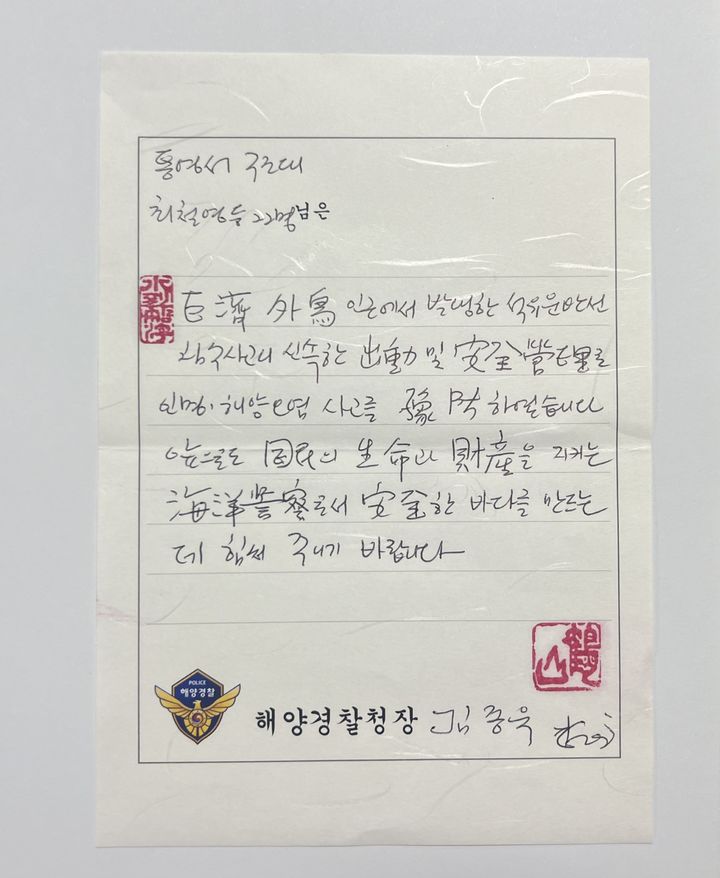 통영서 구조대
최철영등 22명님은
巨濟 外島 인근에서 발생한 석유운반선
침수사고시 신속한 出動 및 安全管理로
인명·해양오염 사고를 豫防하였습니다
앞으로도 国民의 生命과 財産을 지키는
海洋警察로서 安全한 바다를 만드는
데 힘써 주시기 바랍니다
POLICE
해양경찰
해양경찰청장 김종욱